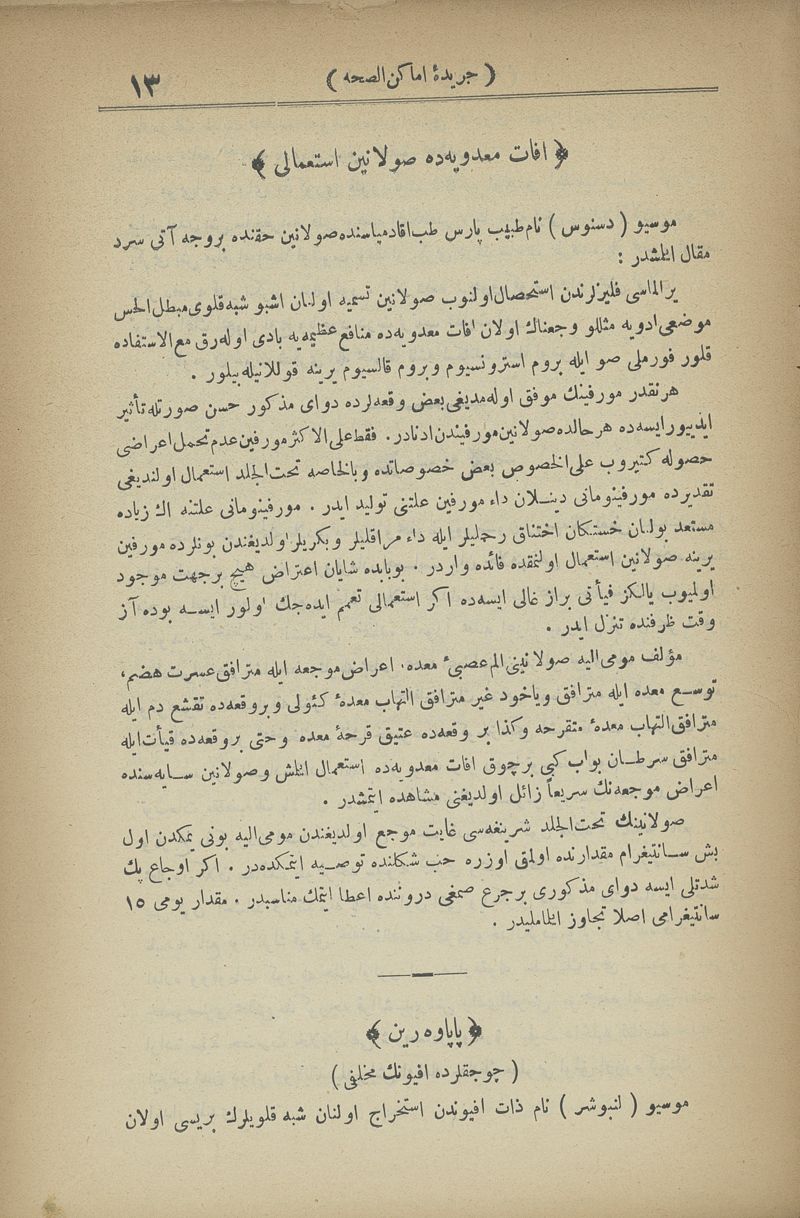 ١٣
( جريدهٔ اماكن الصحه )
﴿ افات معدويه‌ده صولانين استعمالى ﴾
موسيو ( دسنوس ) نام طبيب پارس طب اقادمياسنده صولانين حقنده بروجه آتى سرد
مقال ايلمشدر :
ير الماسى فليزلرندن استحصال اولنوب صولانين تسميه اولنان اشبو شبه قلوى مبطل الحس
موضعى ادويه مثللو وجعناك اولان افات معدويه‌ده منافع عظيميه بادى اوله‌رق مع الاستفاده
قلور فورملى صو ايله بروم استرونسيوم وبروم قالسيوم يرينه قوللانيله‌بيلور .
هر نقدر مورفينك موفق اوله‌مديغى بعض وقعه‌لرده دواى مذكور حسن صورتله تأثير
ايدييور ايسه‌ده هر حالده صولانين مورفيندن ادنادر . فقط على الاكثر مورفين عدم تحمل اعراضى
حصوله كتيروب على الخصوص بعض خصوصاتده وبالخاصه تحت الجلد استعمال اولنديغى
تقديرده مورفينومانى دينلان داء مورفين علتنى توليد ايدر . مورفينومانى علتنه اك زياده
مستعد بولنان خستكان اختناق رحمليلر ايله داء مراقليلر وبكريلر اولديغندن بونلرده مورفين
يرينه صولانين استعمال اولنمقده فائده واردر . بوبابده شايان اعتراض هيچ برجهت موجود
اولميوب يالكز فيأتى براز غالى ايسه‌ده اكر استعمالى تعمم ايده‌جك اولور ايسه بوده آز
وقت ظرفنده تنزل ايدر .
مؤلف مومى اليه صولانينى الم عصبىٔ معده، اعراض موجعه ايله مترافق عسرت هضم،
توسع معده ايله مترافق وياخود غير مترافق التهاب معدهٔ كئولى وبروقعه‌ده تقشع دم ايله
مترافق التهاب معدهٔ متقرحه وكذا بر وقعه‌ده عتيق قرحهٔ معده وحتى بروقعه‌ده قيأت ايله
مترافق سرطان بواب كبى برچوق افات معدويه‌ده استعمال ايلمش وصولانين سايه‌سنده
اعراض موجعه‌نك سريعاً زائل اولديغنى مشاهده ايتمشدر .
صولانينك تحت الجلد شرينغه‌سى غايت موجع اولديغندن مومى اليه بونى يمكدن اول
بش سانتيغرام مقدارنده اولمق اوزره حب شكلنده توصيه ايتمكده‌در . اكر اوجاع پك
شدتلى ايسه دواى مذكورى برجرع صمغى دروننده اعطا ايتمك مناسبدر . مقدار يومى ١٥
سانتيغرامى اصلا تجاوز ايلمامليدر .
﴿ پاپاوه‌رين ﴾
( چوجقلرده افيونك مخلفى )
موسيو ( لنبوشر ) نام ذات افيوندن استخراج اولنان شبه قلويلرك بريسى اولان